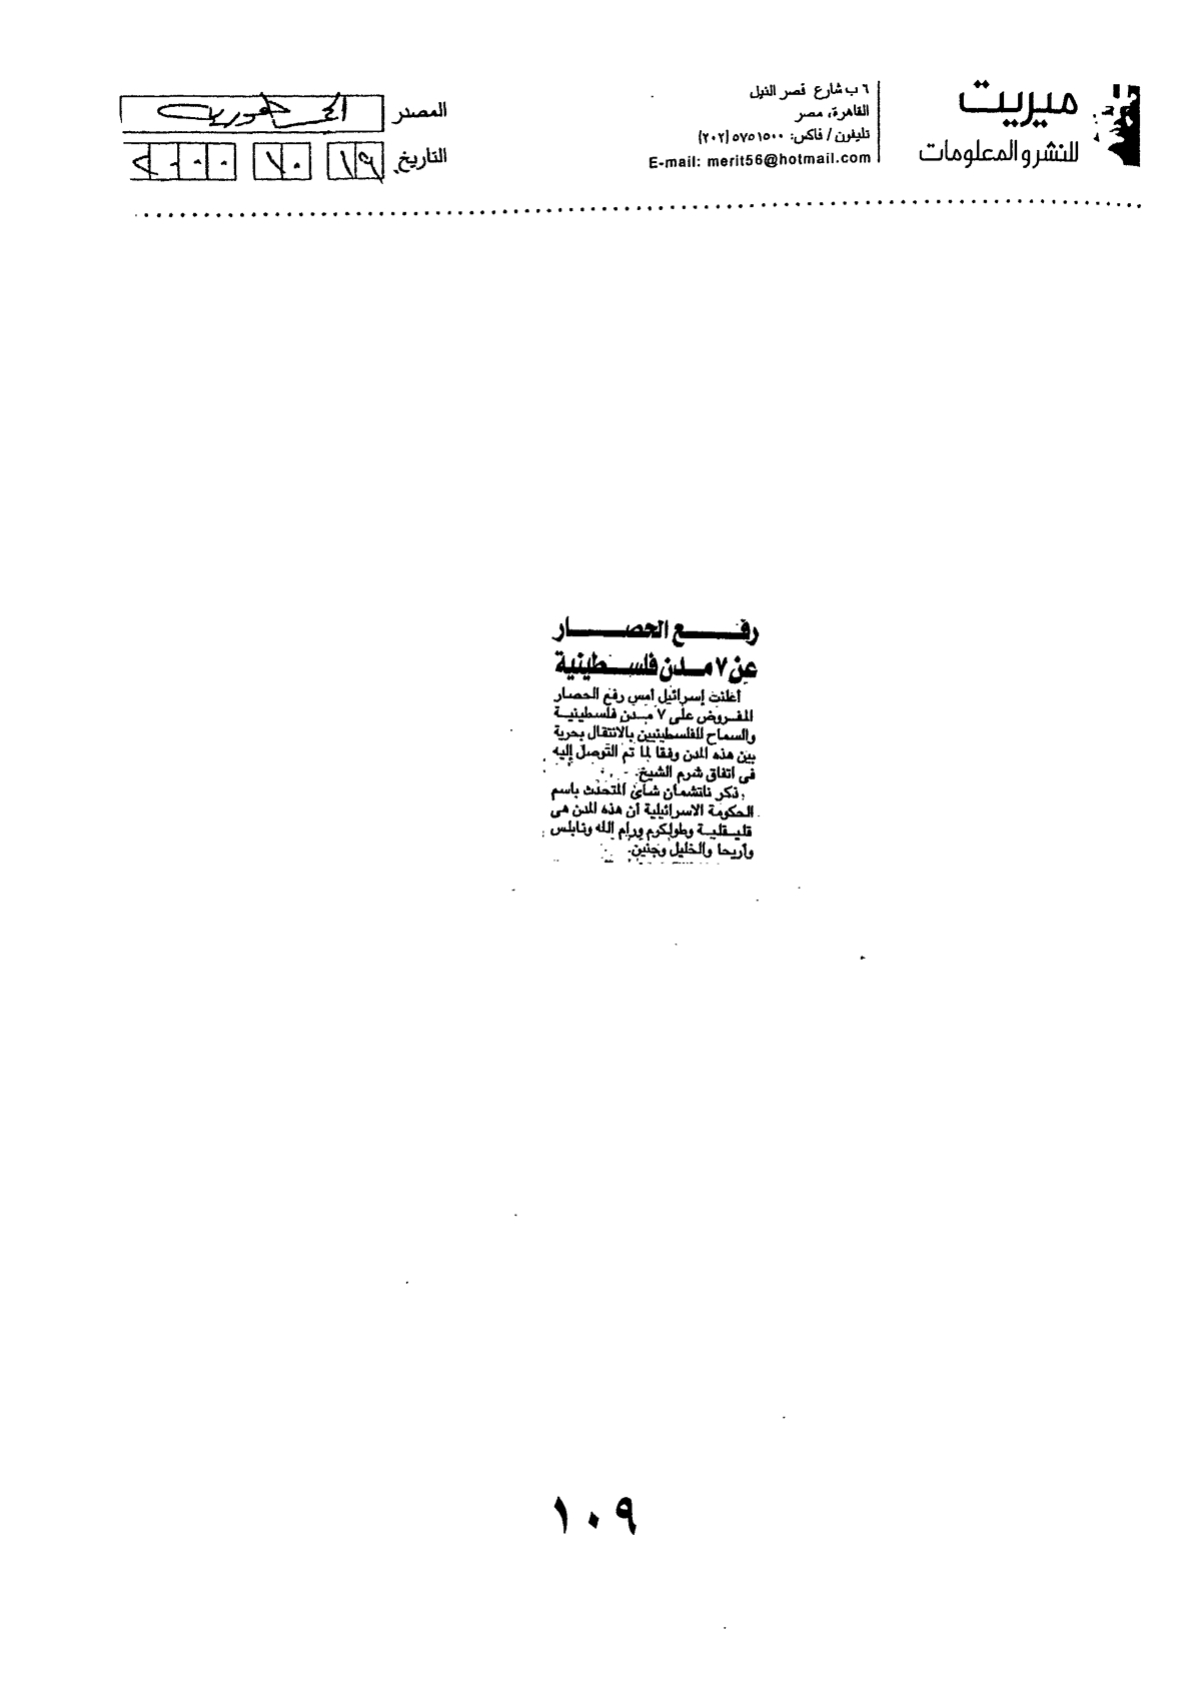 ميريت
للنشر والمعلومات
٦ ب شارع قصر النيل
القاهرة، مصر
تليفون / فاكس: ٥٧٥١٥٠٠ (٢٠٢)
E-mail: merit56@hotmail.com
المصدر الجمهورية
التاريخ ١٩ ١٠ ٢٠٠٠
رفع الحصار
عن ٧ مدن فلسطينية
أعلنت إسرائيل أمس رفع الحصار
المفروض على ٧ مدن فلسطينية
والسماح للفلسطينيين بالانتقال بحرية
بين هذه المدن وفقا لما تم التوصل إليه
فى اتفاق شرم الشيخ.
ذكر ناتشمان شاى المتحدث باسم
الحكومة الاسرائيلية أن هذه المدن هى
قليقلية وطولكرم ورام الله ونابلس
وأريحا والخليل وجنين.
١٠٩